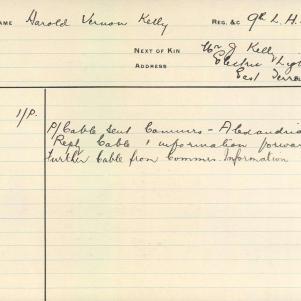 NAME Harold Vernon Kelly REG. &c 9th L. H.
NEXT OF KIN Mr J Kell
ADDRESS Electric Lig
East Terra
1/P. P/Cable sent Commrs - Alexandria
Reply Cable & information forwar
Further Cable from Commrs. Information